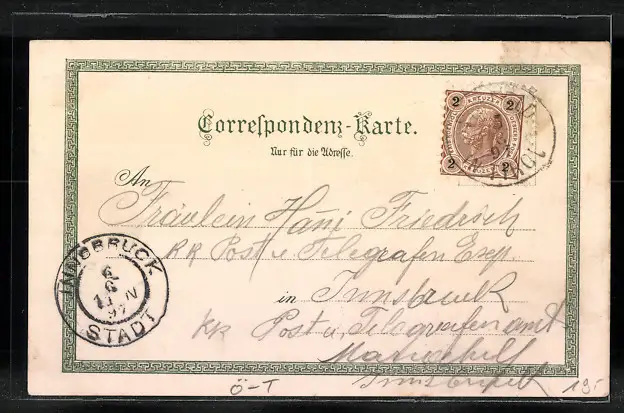 Correspondenz-Karte.
Nur für die Adresse.
2 2
2 2
An
Fräulein Hani Friedrich
KK Post u Telegrafen Exp.
in Innsbruck
KK Post u. Telegrafen amt
Mariahilf
Innsbruck
INNSBRUCK
6
6
97
STADT
Ö-T